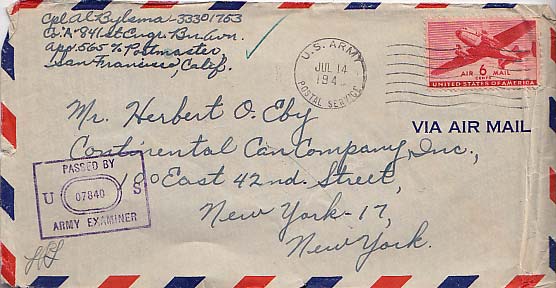 Cpl Al Bylsma-33301753
Co. "A" 841st Engr. Bn. Avn.
App. 565 % Postmaster,
San Francisco, Calif.
U.S. ARMY
JUL 14
194
POSTAL SERVICE
AIR 6 MAIL
CENTS
UNITED STATES OF AMERICA
VIA AIR MAIL
Mr. Herbert O. Eby
Continental Can Company, Inc.,
100 East 42nd. Street,
New York-17,
New York.
PASSED BY
U 07840 S
ARMY EXAMINER